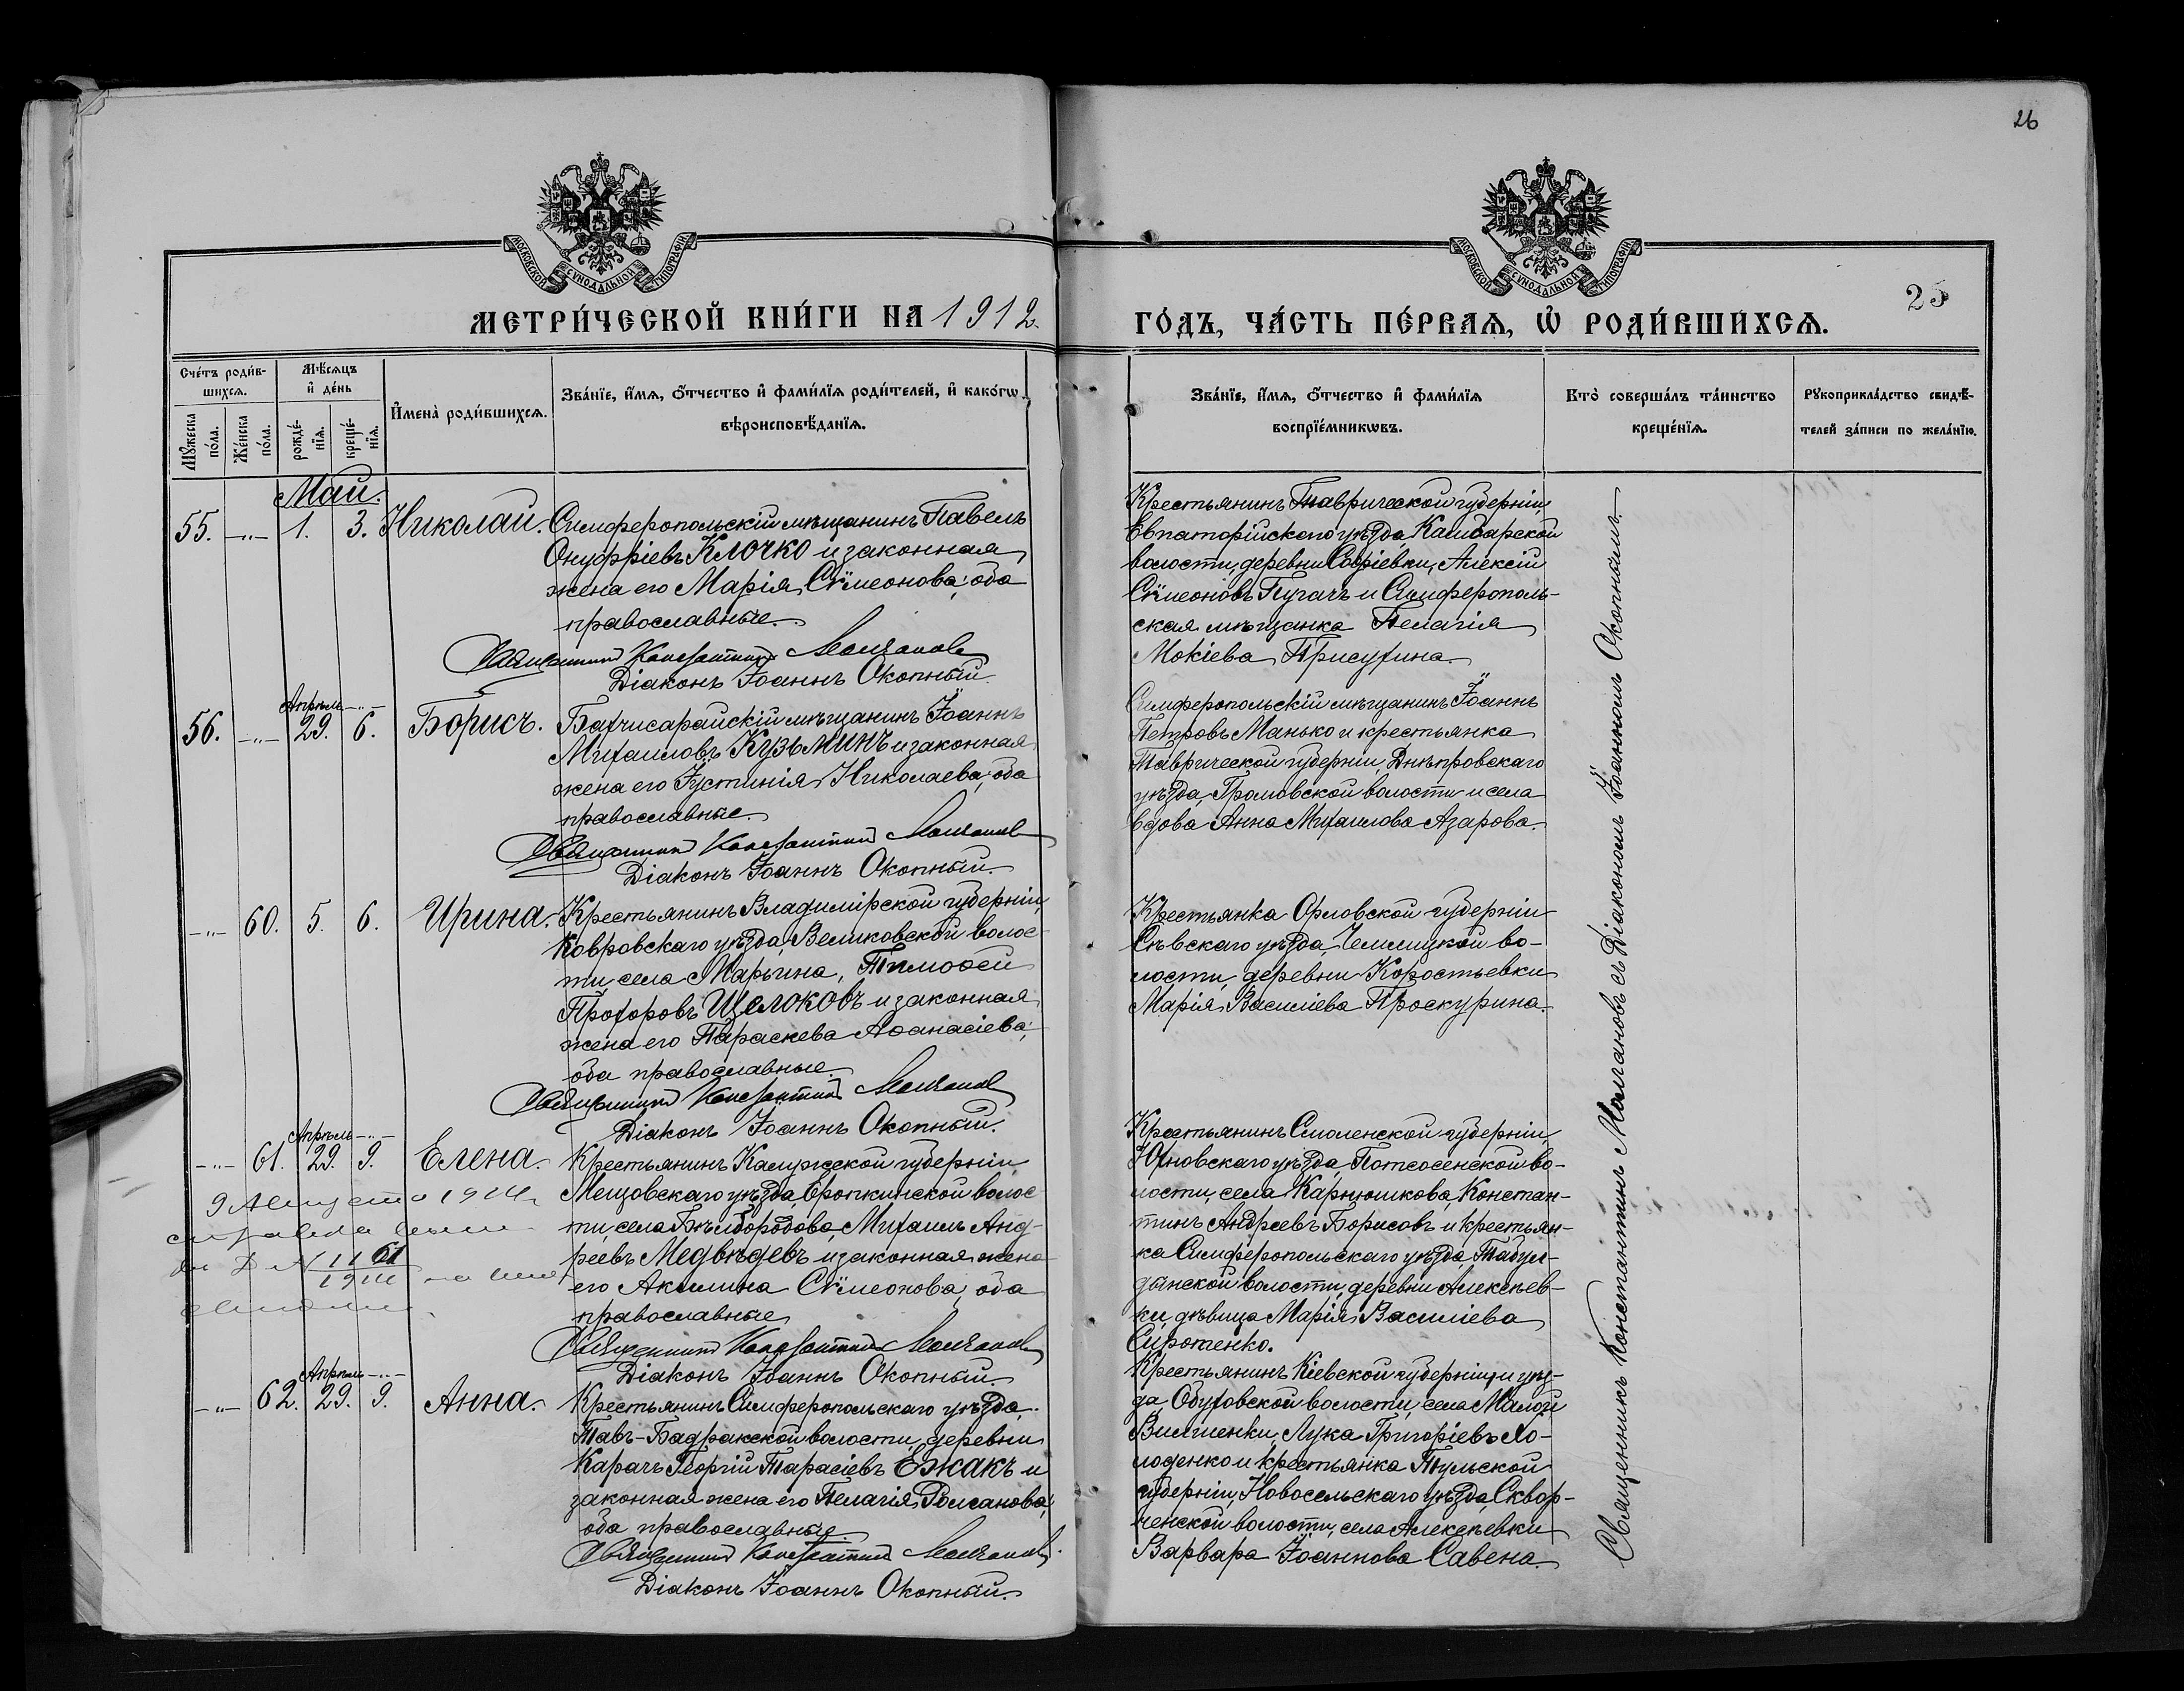 26
25
МОСКОВСКОЙ СУНОДАЛЬНОЙ ТИПОГРАФІИ
МОСКОВСКОЙ СУНОДАЛЬНОЙ ТИПОГРАФІИ
МЕТРИ́ЧЕСКОЙ КНИ́ГИ НА 1912
ГО́ДЪ, ЧА́СТЬ ПЕ́РВАѦ, Ѡ҆ РОДИ́ВШИХСѦ.
Сче́тъ роди́в-
шихсѧ.
Мꙋ́жеска по́ла.
Же́нска по́ла.
Мѣ́сѧцъ
и҆ де́нь
рожде́-
нїѧ.
креще́-
нїѧ.
И҆мена̀ роди́вшихсѧ.
Зва́нїе, и҆́мѧ, ѻ҆́тчество и҆ фами́лїѧ роди́телей, и҆ како́гѡ
вѣроисповѣ́данїѧ.
Зва́нїе, и҆́мѧ, ѻ҆́тчество и҆ фами́лїѧ
воспрїе́мникѡвъ.
Кто̀ соверша́лъ та́инство
креще́нїѧ.
Рꙋкоприкла́дство свидѣ́-
телей за́писи по жела́нїю.
Май.
55. -„- 1. 3. Николай. Симферопольскій мѣщанинъ Павелъ
Онуфріевъ Клочко и законная
жена его Марія Сѵмеонова, оба
православные.
Священникъ Константинъ Молчановъ
Діаконъ Іоаннъ Окопный.
Крестьянинъ Таврической губерніи,
Евпаторійскаго уѣзда, Камбарской
волости, деревни Софіевки, Алексій
Сѵмеоновъ Пугачъ и Симферополь-
ская мѣщанка Пелагія
Мокіева Присухина.
Апрѣль -„-
56. -„- 29. 6. Борисъ. Бахчисарайскій мѣщанинъ Іоаннъ
Михаиловъ Кузьминъ и законная
жена его Іустинія Николаева, оба
православные.
Священникъ Константинъ Молчановъ
Діаконъ Іоаннъ Окопный.
Симферопольскій мѣщанинъ Іоаннъ
Петровъ Манько и крестьянка
Таврической губерніи, Днѣпровскаго
уѣзда, Громовской волости и села
вдова Анна Михаилова Азарова.
-„- 60. 5. 6. Ирина. Крестьянинъ Владимірской губерніи,
Ковровскаго уѣзда, Великовской волос-
ти, села Марьина, Тимоѳей
Прохоровъ Щелоковъ и законная
жена его Параскева Аѳанасіева,
оба православные.
Священникъ Константинъ Молчановъ
Діаконъ Іоаннъ Окопный.
Крестьянка Орловской губерніи
Сѣвскаго уѣзда, Чемлицкой во-
лости, деревни Коростьевки
Марія Василіева Проскурина.
Апрѣль -„-
-„- 61. 29. 9. Елена. Крестьянинъ Калужской губерніи
Мещовскаго уѣзда, Еропкинской волос-
ти, села Бѣлбородова, Михаилъ Анд-
реевъ Медвѣдевъ и законная жена
его Акилина Сѵмеонова, оба
православные
Священникъ Константинъ Молчановъ
Діаконъ Іоаннъ Окопный.
9 Августа 1914
Крестьянинъ Смоленской губерніи,
Юхновскаго уѣзда, Потсосенской во-
лости, села Карнюшкова, Констан-
тинъ Андреевъ Борисовъ и крестьян-
ка Симферопольскаго уѣзда, Табул-
динской волости, деревни Алексѣев-
ки, дѣвица Марія Василіева
Сиротенко.
Апрѣль -„-
-„- 62. 29. 9. Анна. Крестьянинъ Симферопольскаго уѣзда,
Тавъ-Бадракской волости, деревни
Карачъ Георгій Тарасіевъ Ежакъ и
законная жена его Пелагія Романова,
оба православные.
Священникъ Константинъ Молчановъ
Діаконъ Іоаннъ Окопный.
Крестьянинъ Кіевской губерніи и уѣз-
да, Обуховской волости, села Малой
Вильшенки, Лука Григоріевъ Хо-
лоденко и крестьянка Тульской
губерніи, Новосельскаго уѣзда, Сквор-
ченской волости, села Алексѣевки
Варвара Іоаннова Савена.
Священникъ Константинъ Молчановъ съ Діакономъ Іоанномъ Окопнымъ.